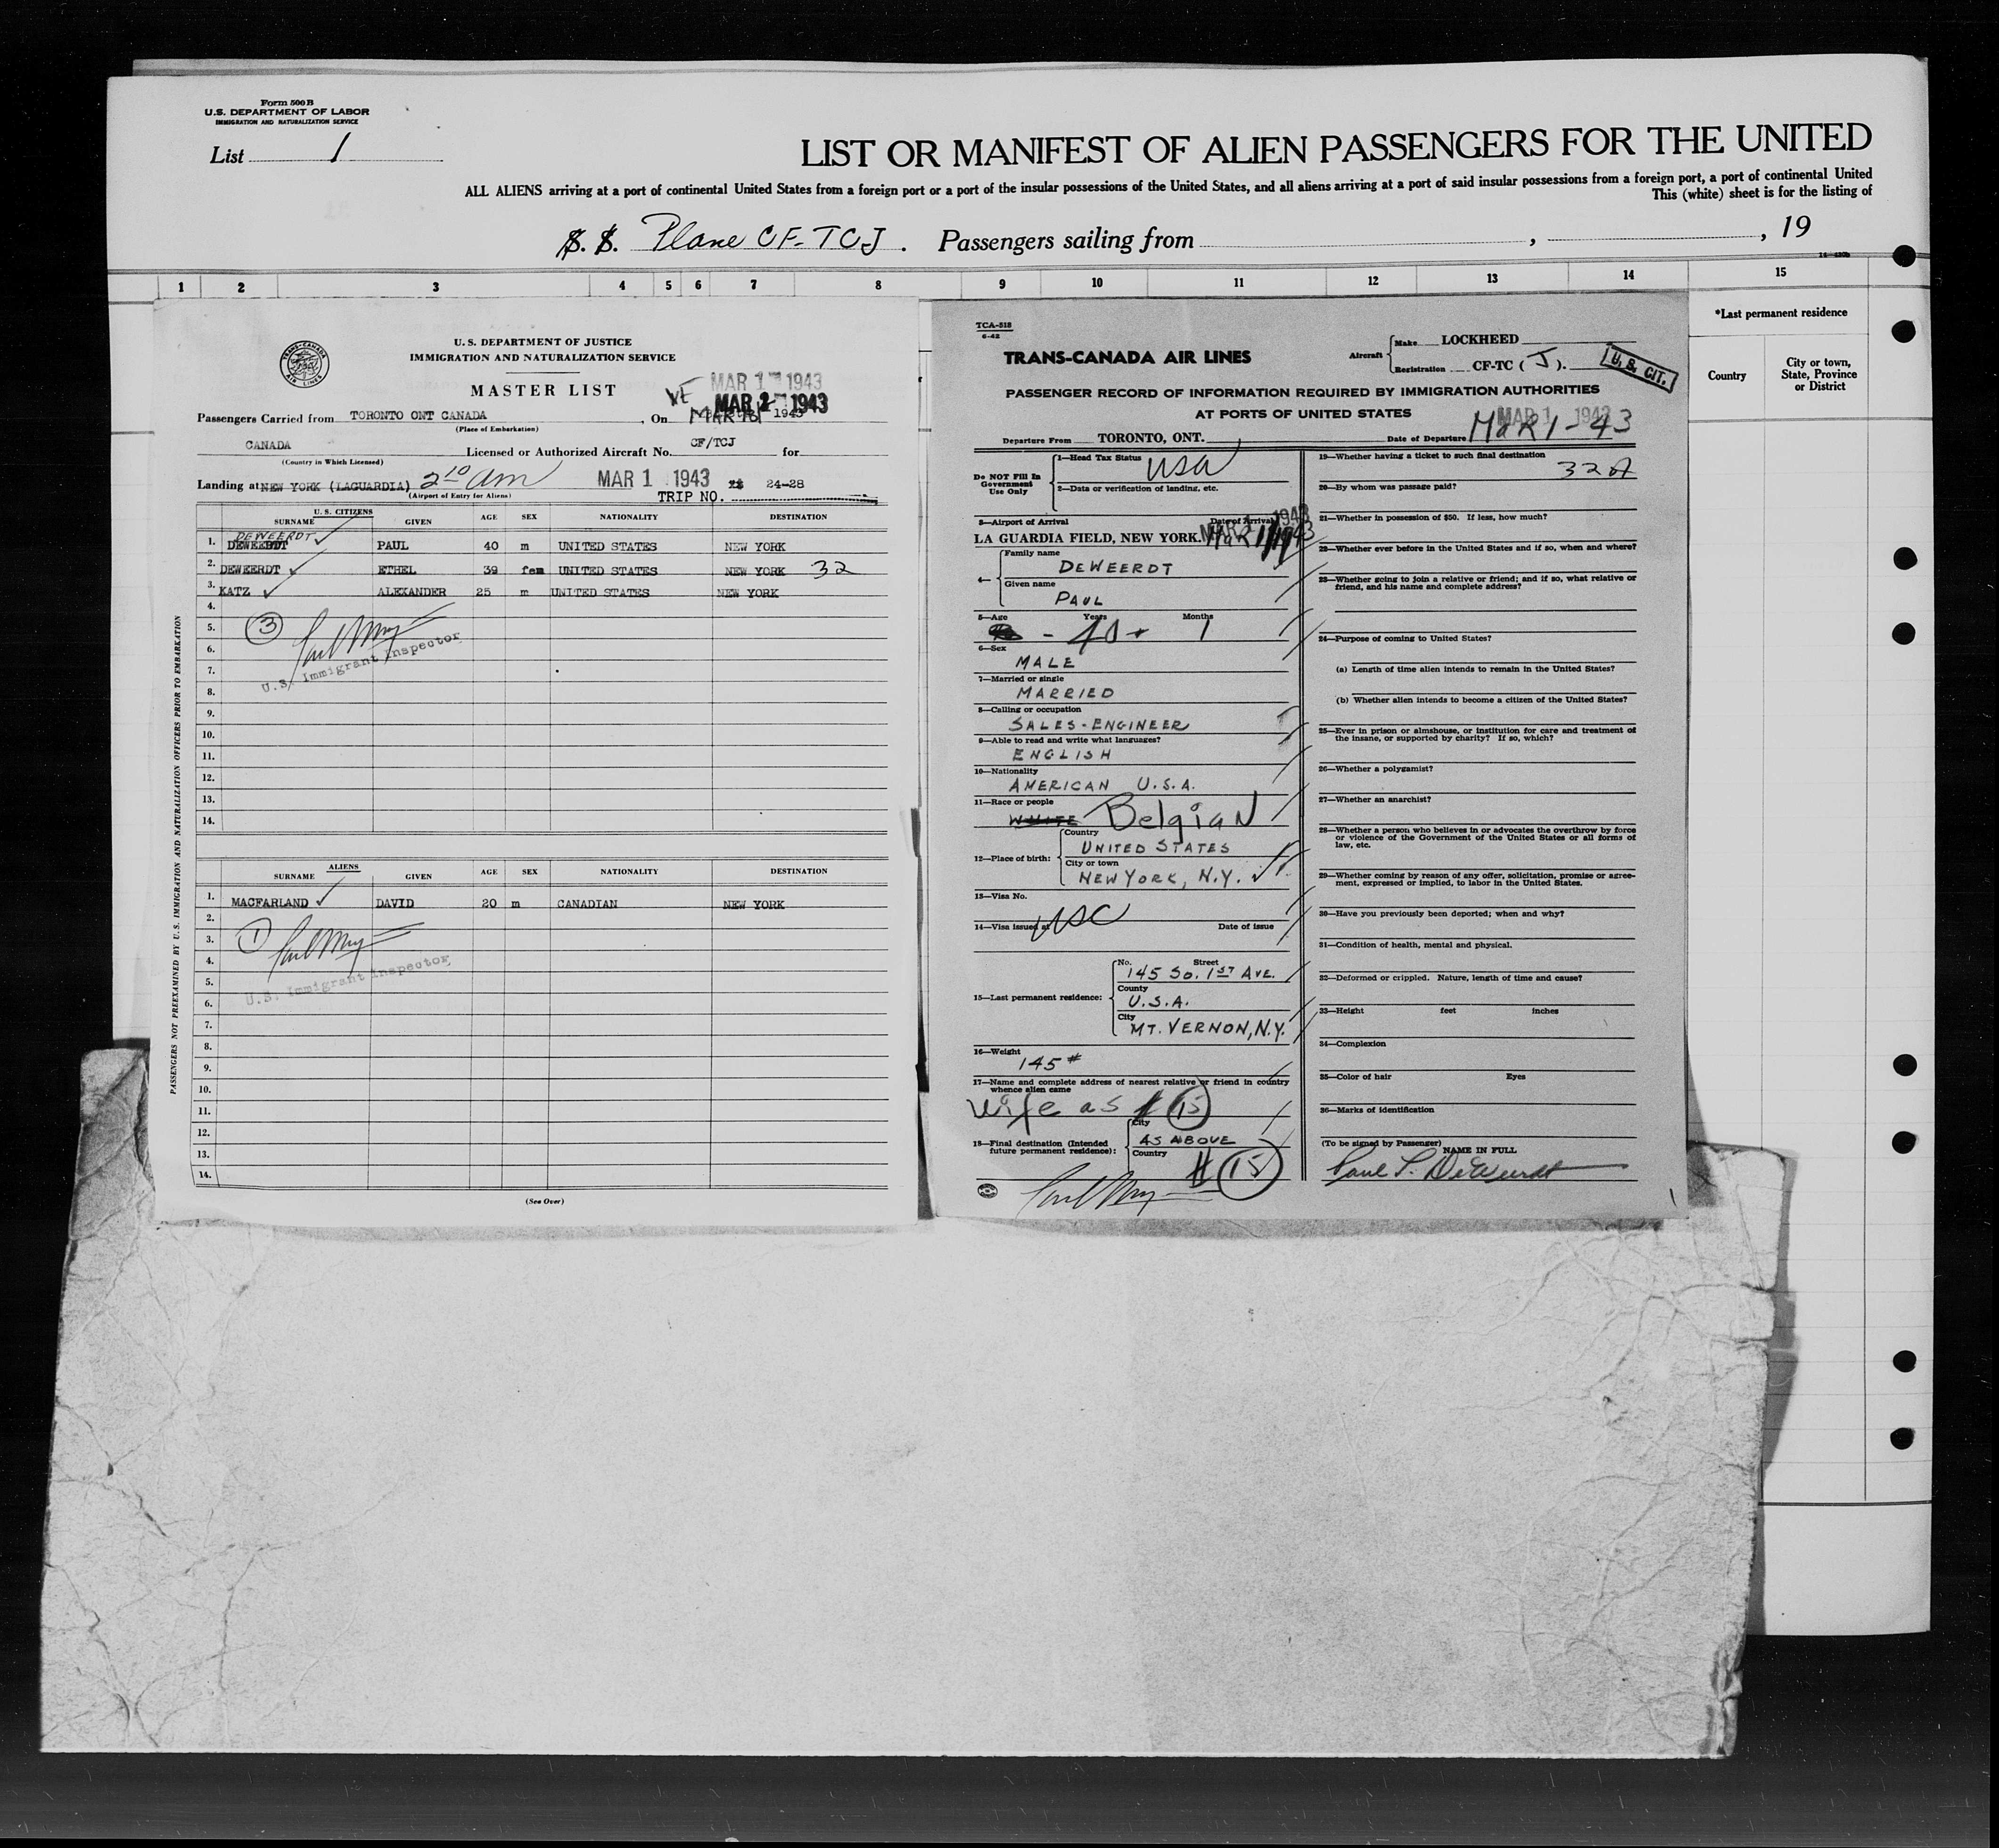 Form 500B
U.S. DEPARTMENT OF LABOR
IMMIGRATION AND NATURALIZATION SERVICE
List 1
LIST OR MANIFEST OF ALIEN PASSENGERS FOR THE UNITED
ALL ALIENS arriving at a port of continental United States from a foreign port or a port of the insular possessions of the United States, and all aliens arriving at a port of said insular possessions from a foreign port, a port of continental United
This (white) sheet is for the listing of
S. S. Plane CF-TCJ. Passengers sailing from , , 19
1 2 3 4 5 6 7 8 9 10 11 12 13 14 15
*Last permanent residence
Country
City or town, State, Province or District
TRANS-CANADA AIR LINES
U. S. DEPARTMENT OF JUSTICE
IMMIGRATION AND NATURALIZATION SERVICE
MASTER LIST
MAR 1 1943
MAR 2 1943
Passengers Carried from TORONTO ONT CANADA, On
(Place of Embarkation)
CANADA Licensed or Authorized Aircraft No. CF/TCJ for
(Country in Which Licensed)
Landing at NEW YORK (LAGUARDIA) 2 10 am MAR 1 1943 24-28
(Airport of Entry for Aliens)
TRIP NO.
U. S. CITIZENS
SURNAME GIVEN AGE SEX NATIONALITY DESTINATION
DEWEERDT
1. DEWEERDT PAUL 40 m UNITED STATES NEW YORK
2. DEWEERDT ETHEL 39 fem UNITED STATES NEW YORK 32
3. KATZ ALEXANDER 25 m UNITED STATES NEW YORK
4.
5. 3
6.
U.S. Immigrant Inspector
7.
8.
9.
10.
11.
12.
13.
14.
ALIENS
SURNAME GIVEN AGE SEX NATIONALITY DESTINATION
1. MACFARLAND DAVID 20 m CANADIAN NEW YORK
2.
3. 1
4.
5.
U.S. Immigrant Inspector
6.
7.
8.
9.
10.
11.
12.
13.
14.
(See Over)
PASSENGERS NOT PREEXAMINED BY U. S. IMMIGRATION AND NATURALIZATION OFFICERS PRIOR TO EMBARKATION
TCA-518
6-42
TRANS-CANADA AIR LINES
Aircraft Make LOCKHEED
Registration CF-TC ( J ).
U. S. CIT.
PASSENGER RECORD OF INFORMATION REQUIRED BY IMMIGRATION AUTHORITIES
AT PORTS OF UNITED STATES
MAR 1 1943
Departure From TORONTO, ONT. Date of Departure MAR 1-43
Do NOT Fill In
Government
Use Only
1—Head Tax Status USA
2—Data or verification of landing, etc.
3—Airport of Arrival Date of Arrival
LA GUARDIA FIELD, NEW YORK. MAR 1 1943
4— Family name
DEWEERDT
Given name
PAUL
5—Age Years Months
- 40 + 1
6—Sex
MALE
7—Married or single
MARRIED
8—Calling or occupation
SALES-ENGINEER
9—Able to read and write what languages?
ENGLISH
10—Nationality
AMERICAN U.S.A.
11—Race or people
WHITE Belgian
12—Place of birth: Country
UNITED STATES
City or town
NEW YORK, N.Y.
13—Visa No.
USC
14—Visa issued at Date of issue
15—Last permanent residence: No. Street
145 SO. 1ST AVE.
County
U.S.A.
City
MT. VERNON, N.Y.
16—Weight
145 #
17—Name and complete address of nearest relative or friend in country
whence alien came
Wife as # 15
18—Final destination (Intended
future permanent residence): City
AS ABOVE
Country
# 15
19—Whether having a ticket to such final destination
20—By whom was passage paid?
21—Whether in possession of $50. If less, how much?
22—Whether ever before in the United States and if so, when and where?
23—Whether going to join a relative or friend; and if so, what relative or
friend, and his name and complete address?
24—Purpose of coming to United States?
(a) Length of time alien intends to remain in the United States?
(b) Whether alien intends to become a citizen of the United States?
25—Ever in prison or almshouse, or institution for care and treatment of
the insane, or supported by charity? If so, which?
26—Whether a polygamist?
27—Whether an anarchist?
28—Whether a person who believes in or advocates the overthrow by force
or violence of the Government of the United States or all forms of
law, etc.
29—Whether coming by reason of any offer, solicitation, promise or agree-
ment, expressed or implied, to labor in the United States.
30—Have you previously been deported; when and why?
31—Condition of health, mental and physical.
32—Deformed or crippled. Nature, length of time and cause?
33—Height feet inches
34—Complexion
35—Color of hair Eyes
36—Marks of identification
(To be signed by Passenger) NAME IN FULL
Paul P. DeWeerdt